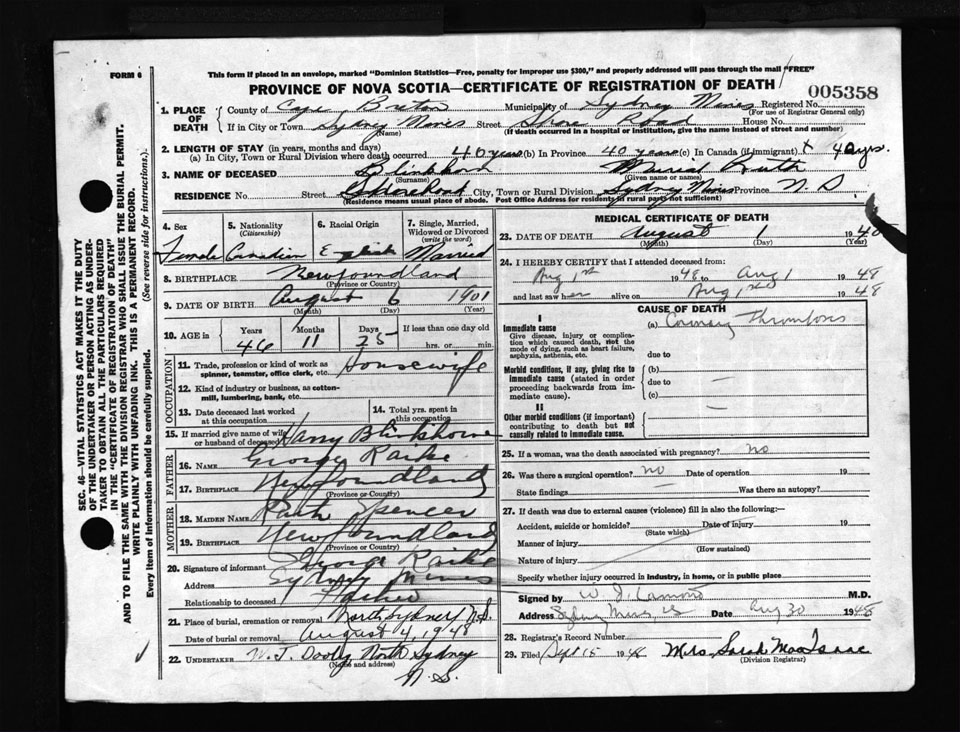 FORM 6
This form if placed in an envelope, marked "Dominion Statistics—Free, penalty for improper use $300," and properly addressed will pass through the mail "FREE"
PROVINCE OF NOVA SCOTIA—CERTIFICATE OF REGISTRATION OF DEATH
005358
1. PLACE OF DEATH County of Cape Breton Municipality of Sydney Mines Registered No.
(For use of Registrar General only)
If in City or Town Sydney Mines Street Shore Road House No.
(Name) (If death occurred in a hospital or institution, give the name instead of street and number)
2. LENGTH OF STAY (in years, months and days)
(a) In City, Town or Rural Division where death occurred 40 years (b) In Province 40 years (c) In Canada (if immigrant) 40 yrs.
3. NAME OF DECEASED Blinkhorn Muriel Ruth
(Surname) (Given name or names)
RESIDENCE No. Street Shore Road City, Town or Rural Division Sydney Mines Province N S
(Residence means usual place of abode. Post Office Address for residents in rural parts not sufficient)
4. Sex 5. Nationality (Citizenship) 6. Racial Origin 7. Single, Married, Widowed or Divorced (write the word)
Female Canadian English Married
8. BIRTHPLACE Newfoundland
(Province or Country)
9. DATE OF BIRTH August 6 1901
(Month) (Day) (Year)
10. AGE in Years Months Days If less than one day old
46 11 25 hrs. or min.
OCCUPATION
11. Trade, profession or kind of work as spinner, teamster, office clerk, etc. Housewife
12. Kind of industry or business, as cotton-mill, lumbering, bank, etc.
13. Date deceased last worked at this occupation
14. Total yrs. spent in this occupation
15. If married give name of wife or husband of deceased Harry Blinkhorn
FATHER
16. Name George Raike
17. Birthplace Newfoundland
(Province or Country)
MOTHER
18. Maiden Name Ruth Spencer
19. Birthplace Newfoundland
(Province or Country)
20. Signature of informant George Raike
Address Sydney Mines
Relationship to deceased Father
21. Place of burial, cremation or removal North Sydney N.S.
Date of burial or removal August 4, 1948
22. UNDERTAKER W. J. Dooley North Sydney
(Name and address)
N. S.
MEDICAL CERTIFICATE OF DEATH
23. DATE OF DEATH August 1 1948
(Month) (Day) (Year)
24. I HEREBY CERTIFY that I attended deceased from:
Aug 1st 1948 to Aug 1 1948
and last saw her alive on Aug 1st 1948
CAUSE OF DEATH
I
Immediate cause (a) Coronary Thrombosis
Give disease, injury or complication which caused death, not the mode of dying, such as heart failure, asphyxia, asthenia, etc. due to
Morbid conditions, if any, giving rise to immediate cause (stated in order proceeding backwards from immediate cause). (b) due to —
(c)
II
Other morbid conditions (if important) contributing to death but not causally related to immediate cause. —
25. If a woman, was the death associated with pregnancy? no
26. Was there a surgical operation? no Date of operation 19
State findings — Was there an autopsy?
27. If death was due to external causes (violence) fill in also the following:—
Accident, suicide or homicide? Date of injury 19
(State which)
Manner of injury
(How sustained)
Nature of injury
Specify whether injury occurred in industry, in home, or in public place
Signed by W. J. Lamond M.D.
Address Sydney Mines NS Date Aug 30 1948
28. Registrar's Record Number
29. Filed Sept 15 1948 Mrs. Sarah MacIsaac
(Division Registrar)
SEC. 46—VITAL STATISTICS ACT MAKES IT THE DUTY
OF THE UNDERTAKER OR PERSON ACTING AS UNDER-
TAKER TO OBTAIN ALL THE PARTICULARS REQUIRED
IN THE "CERTIFICATE OF REGISTRATION OF DEATH"
AND TO FILE THE SAME WITH THE DIVISION REGISTRAR WHO SHALL ISSUE THE BURIAL PERMIT.
WRITE PLAINLY WITH UNFADING INK. THIS IS A PERMANENT RECORD.
Every item of information should be carefully supplied. (See reverse side for instructions.)